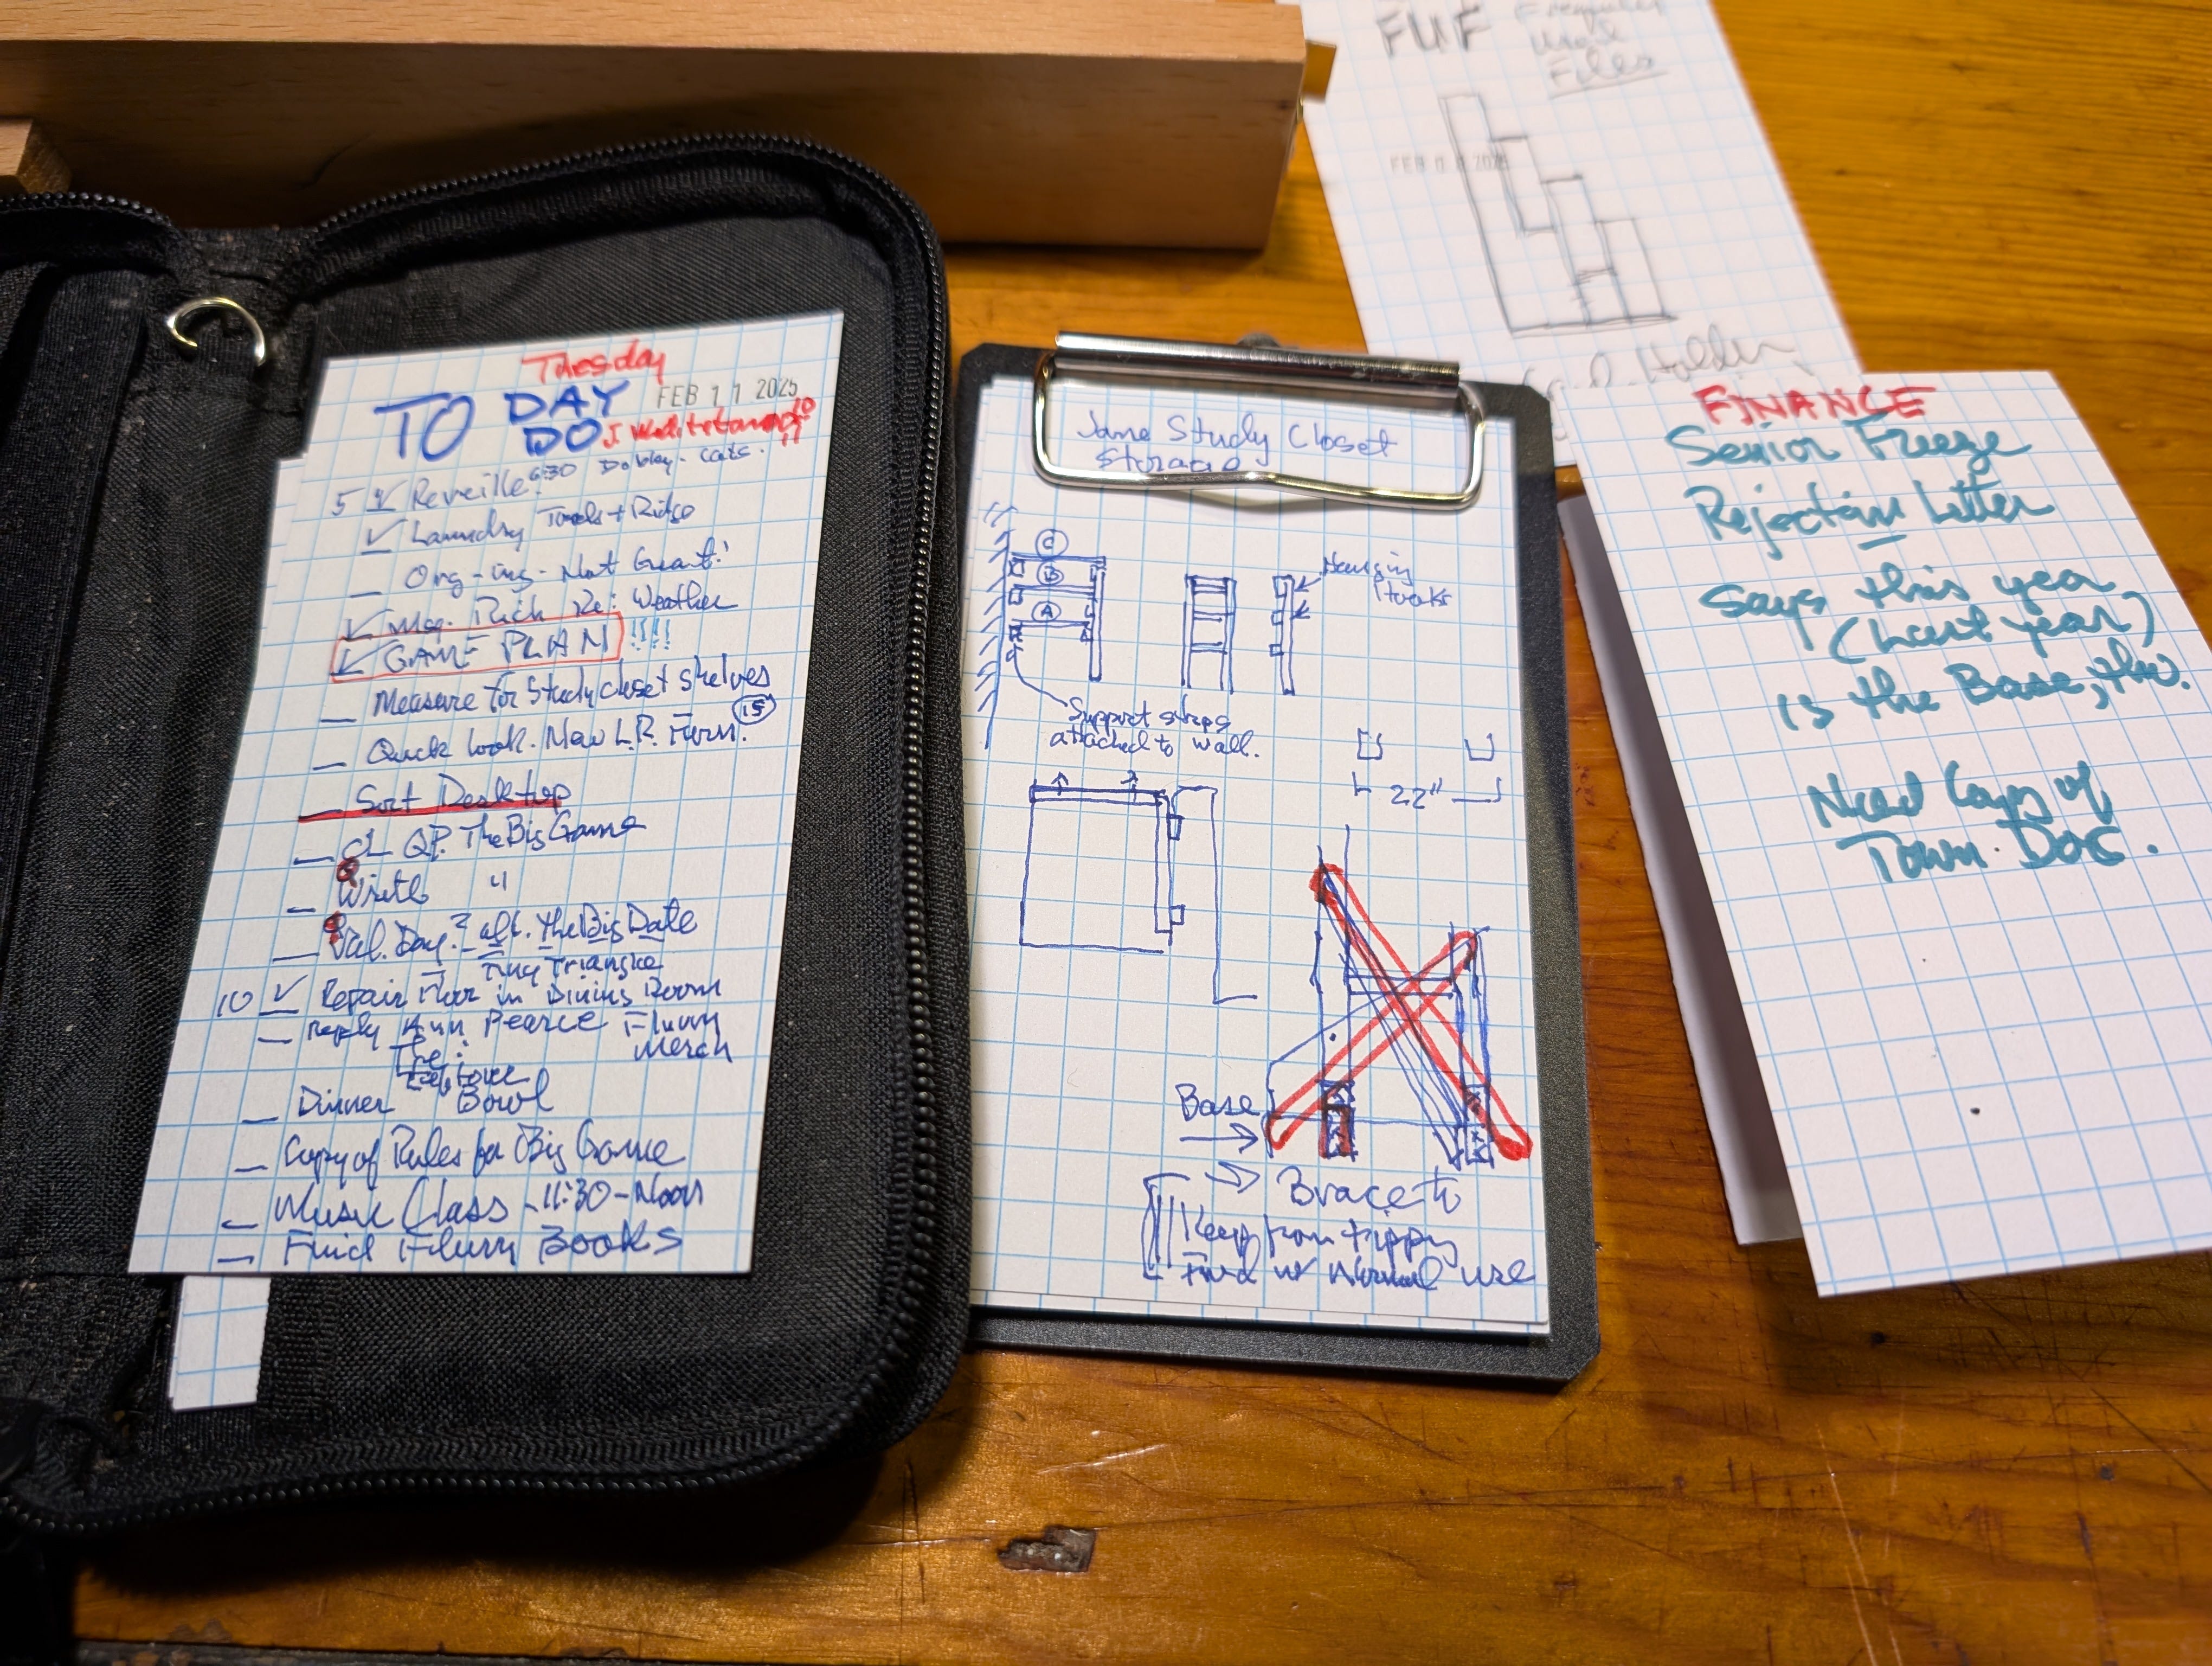 Tuesday
TO DAY
DO
FEB 11 2025
5 Reveille 6:30 cats.
Laundry Towels + Ridge
Org-ing - Not Great!
Msg. Rich Re: Weather
GAME PLAN !!!!
Measure for Study closet shelves
Quick Look. New L.R. Furn. 15
Sort Desktop
QP. The Big Game
Write "
Val. Day? The Big Date
Tiny Triangle
10 Repair Floor in Dining Room
Reply Ann Pearce Flurry
Merch
The
Dinner Bowl
Copy of Rules for Big Game
Music Class - 11:30 - Noon
Find Flurry Books
Jane Study Closet
Storage
C
B
A
Hanging
Hooks
Support strips
attached to wall.
22"
Base
Brace to
Keep from tippy
Fwd w/ Normal use
FUF Frequently
Used
Files
FEB 2025
Holder
FINANCE
Senior Freeze
Rejection Letter
Says this year
(Last year)
is the Base, tho.
Need Copy of
Town Docs.